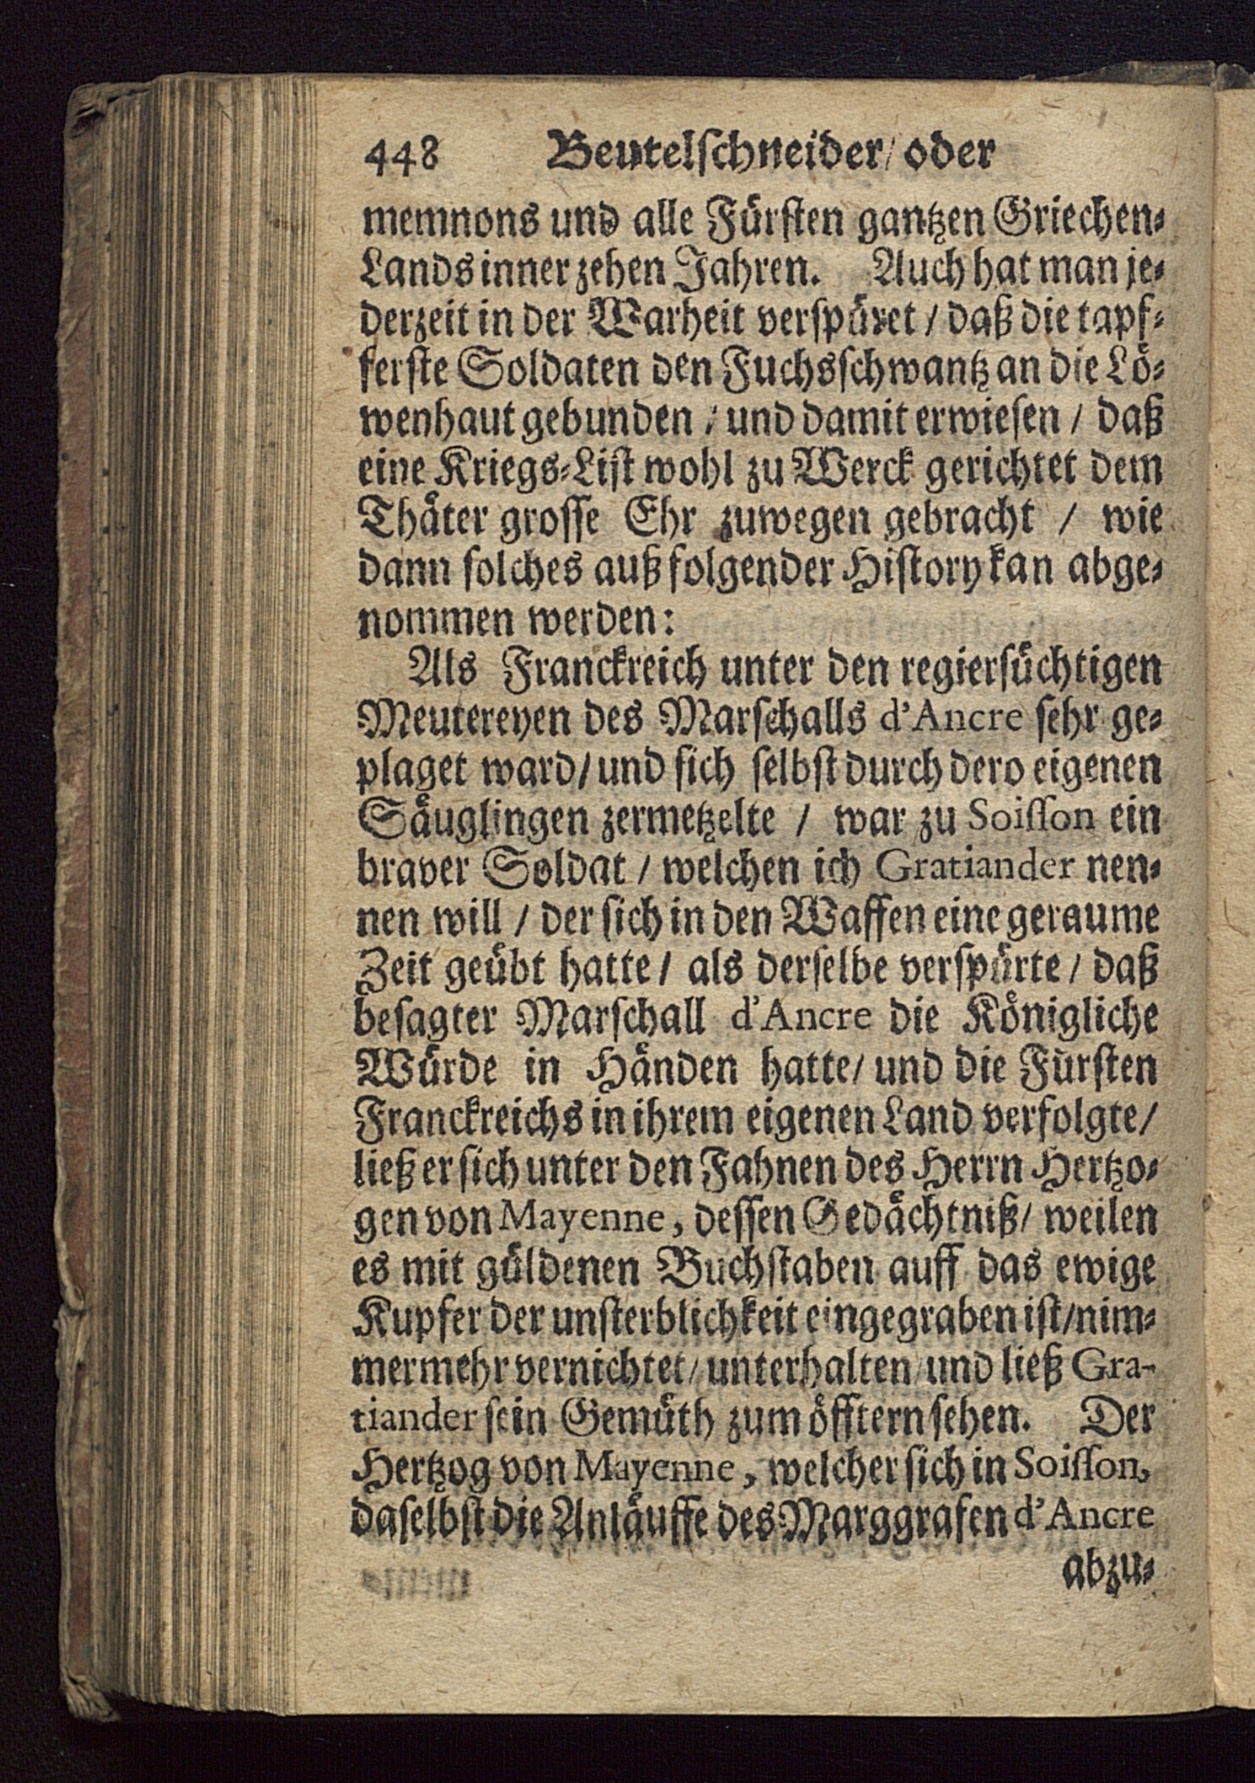 448 Beutelschneider/ oder
memnons und alle Fürsten gantzen Griechen-
Lands inner zehen Jahren. Auch hat man je-
derzeit in der Warheit verspüret / daß die tapf-
ferste Soldaten den Fuchsschwantz an die Lö-
wenhaut gebunden / und damit erwiesen / daß
eine Kriegs-List wohl zu Werck gerichtet dem
Thäter grosse Ehr zuwegen gebracht / wie
dann solches auß folgender History kan abge-
nommen werden:
Als Franckreich unter den regiersüchtigen
Meutereyen des Marschalls d'Ancre sehr ge-
plaget ward/ und sich selbst durch dero eigenen
Säuglingen zermetzelte / war zu Soisson ein
braver Soldat / welchen ich Gratiander nen-
nen will / der sich in den Waffen eine geraume
Zeit geübt hatte / als derselbe verspürte / daß
besagter Marschall d'Ancre die Königliche
Würde in Händen hatte/ und die Fürsten
Franckreichs in ihrem eigenen Land verfolgte/
ließ er sich unter den Fahnen des Herrn Hertzo-
gen von Mayenne, dessen Gedächtniß/ weilen
es mit güldenen Buchstaben auff das ewige
Kupfer der unsterblichkeit eingegraben ist/nim-
mermehr vernichtet/ unterhalten/ und ließ Gra-
tiander sein Gemüth zum öfftern sehen. Der
Hertzog von Mayenne, welcher sich in Soisson,
daselbst die Anläuffe des Marggrafen d'Ancre
abzu-